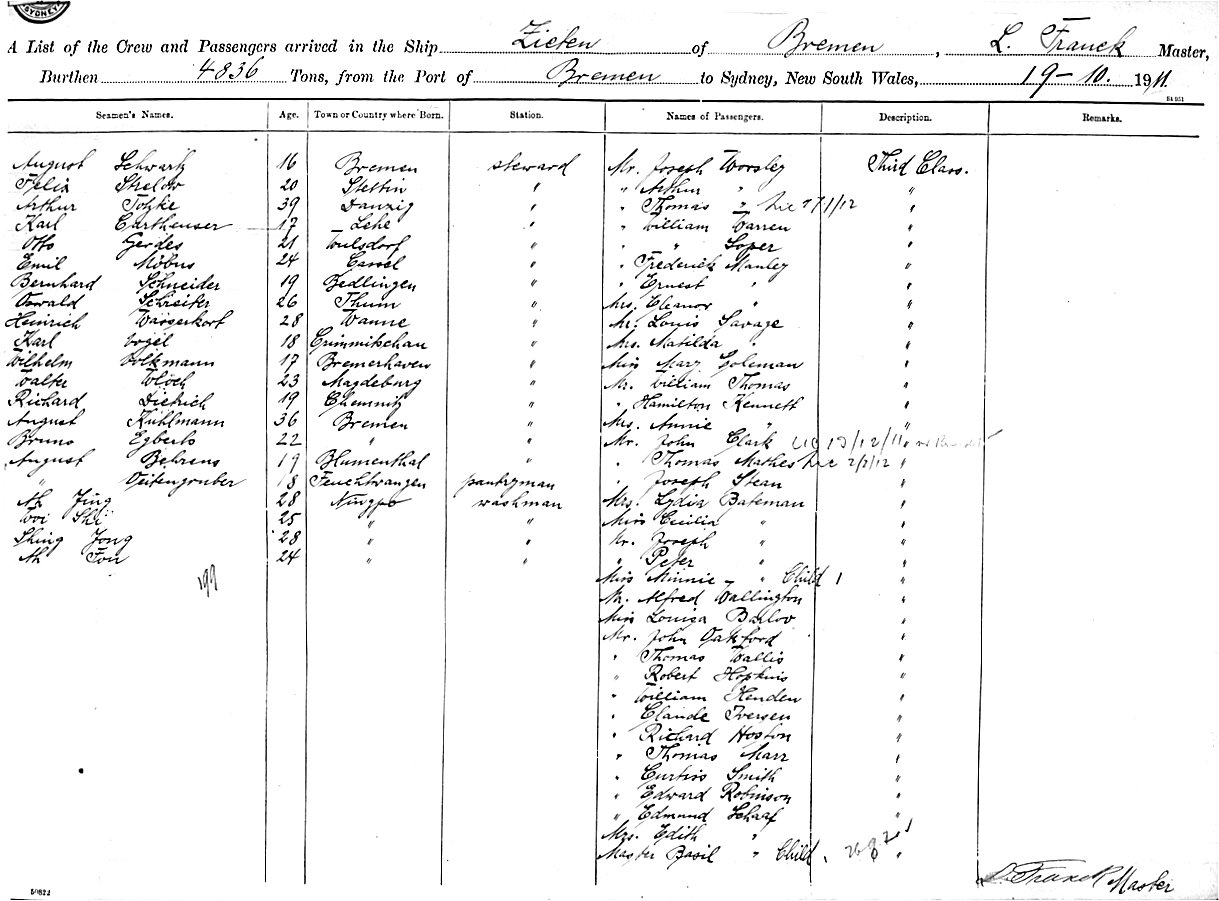 SYDNEY
A List of the Crew and Passengers arrived in the Ship Zieten of Bremen, L. Franck Master,
Burthen 4836 Tons, from the Port of Bremen to Sydney, New South Wales, 19-10. 1911.
St 951
Seamen's Names. Age. Town or Country where Born. Station. Names of Passengers. Description. Remarks.
August Schwartz 16 Bremen steward Mr. Joseph Worsley Third Class.
Felix Strelow 20 Stettin " " Arthur " "
Arthur Topke 39 Danzig " " Thomas " 7/1/12 "
Karl Carthenser 17 Lehe " " William Warren "
Otto Gerdes 21 Wulsdorf " " " Soper "
Emil Möbus 24 Cassel " " Frederick Manley "
Bernhard Schneider 19 Bedlingen " " Ernest " "
Oswald Schreiter 26 Thum " Mrs. Eleanor " "
Heinrich Wasserkort 28 Wanne " Mr. Louis Savage "
Karl Vogel 18 Crimmitschau " Mrs. Matilda " "
Wilhelm Volkmann 17 Bremerhaven " Miss Mary Coleman "
Walter Wloch 23 Magdeburg " Mr. William Thomas "
Richard Dietrich 19 Chemnitz " " Hamilton Kenneth "
August Kuhlmann 36 Bremen " Mrs. Annie " "
Bruno Egberts 22 " " Mr. John Clark 13/12/11 "
August Behrens 19 Blumenthal " " Thomas Mathes 2/2/12 "
" Oeitengruber 18 Feuchtwangen pantryman " Joseph Stean "
Ah Jing 28 Ningpo washman Mrs. Lydia Bateman "
Woi Shi 25 " " Miss Cecilia " "
Shing Jong 28 " " Mr. Joseph " "
Ah Fou 24 " " " Peter " "
199 Miss Minnie " Child 1 "
Mr. Alfred Wallington "
Miss Louisa Barlov "
Mr. John Oakford "
" Thomas Wallis "
" Robert Hopkins "
" William Henden "
" Claude Iversen "
" Richard Hoston "
" Thomas Marr "
" Curtiss Smith "
" Edward Robinson "
" Edmund Scharf "
Mrs. Edith " "
Master Basil " Child "
L. Franck Master
50824